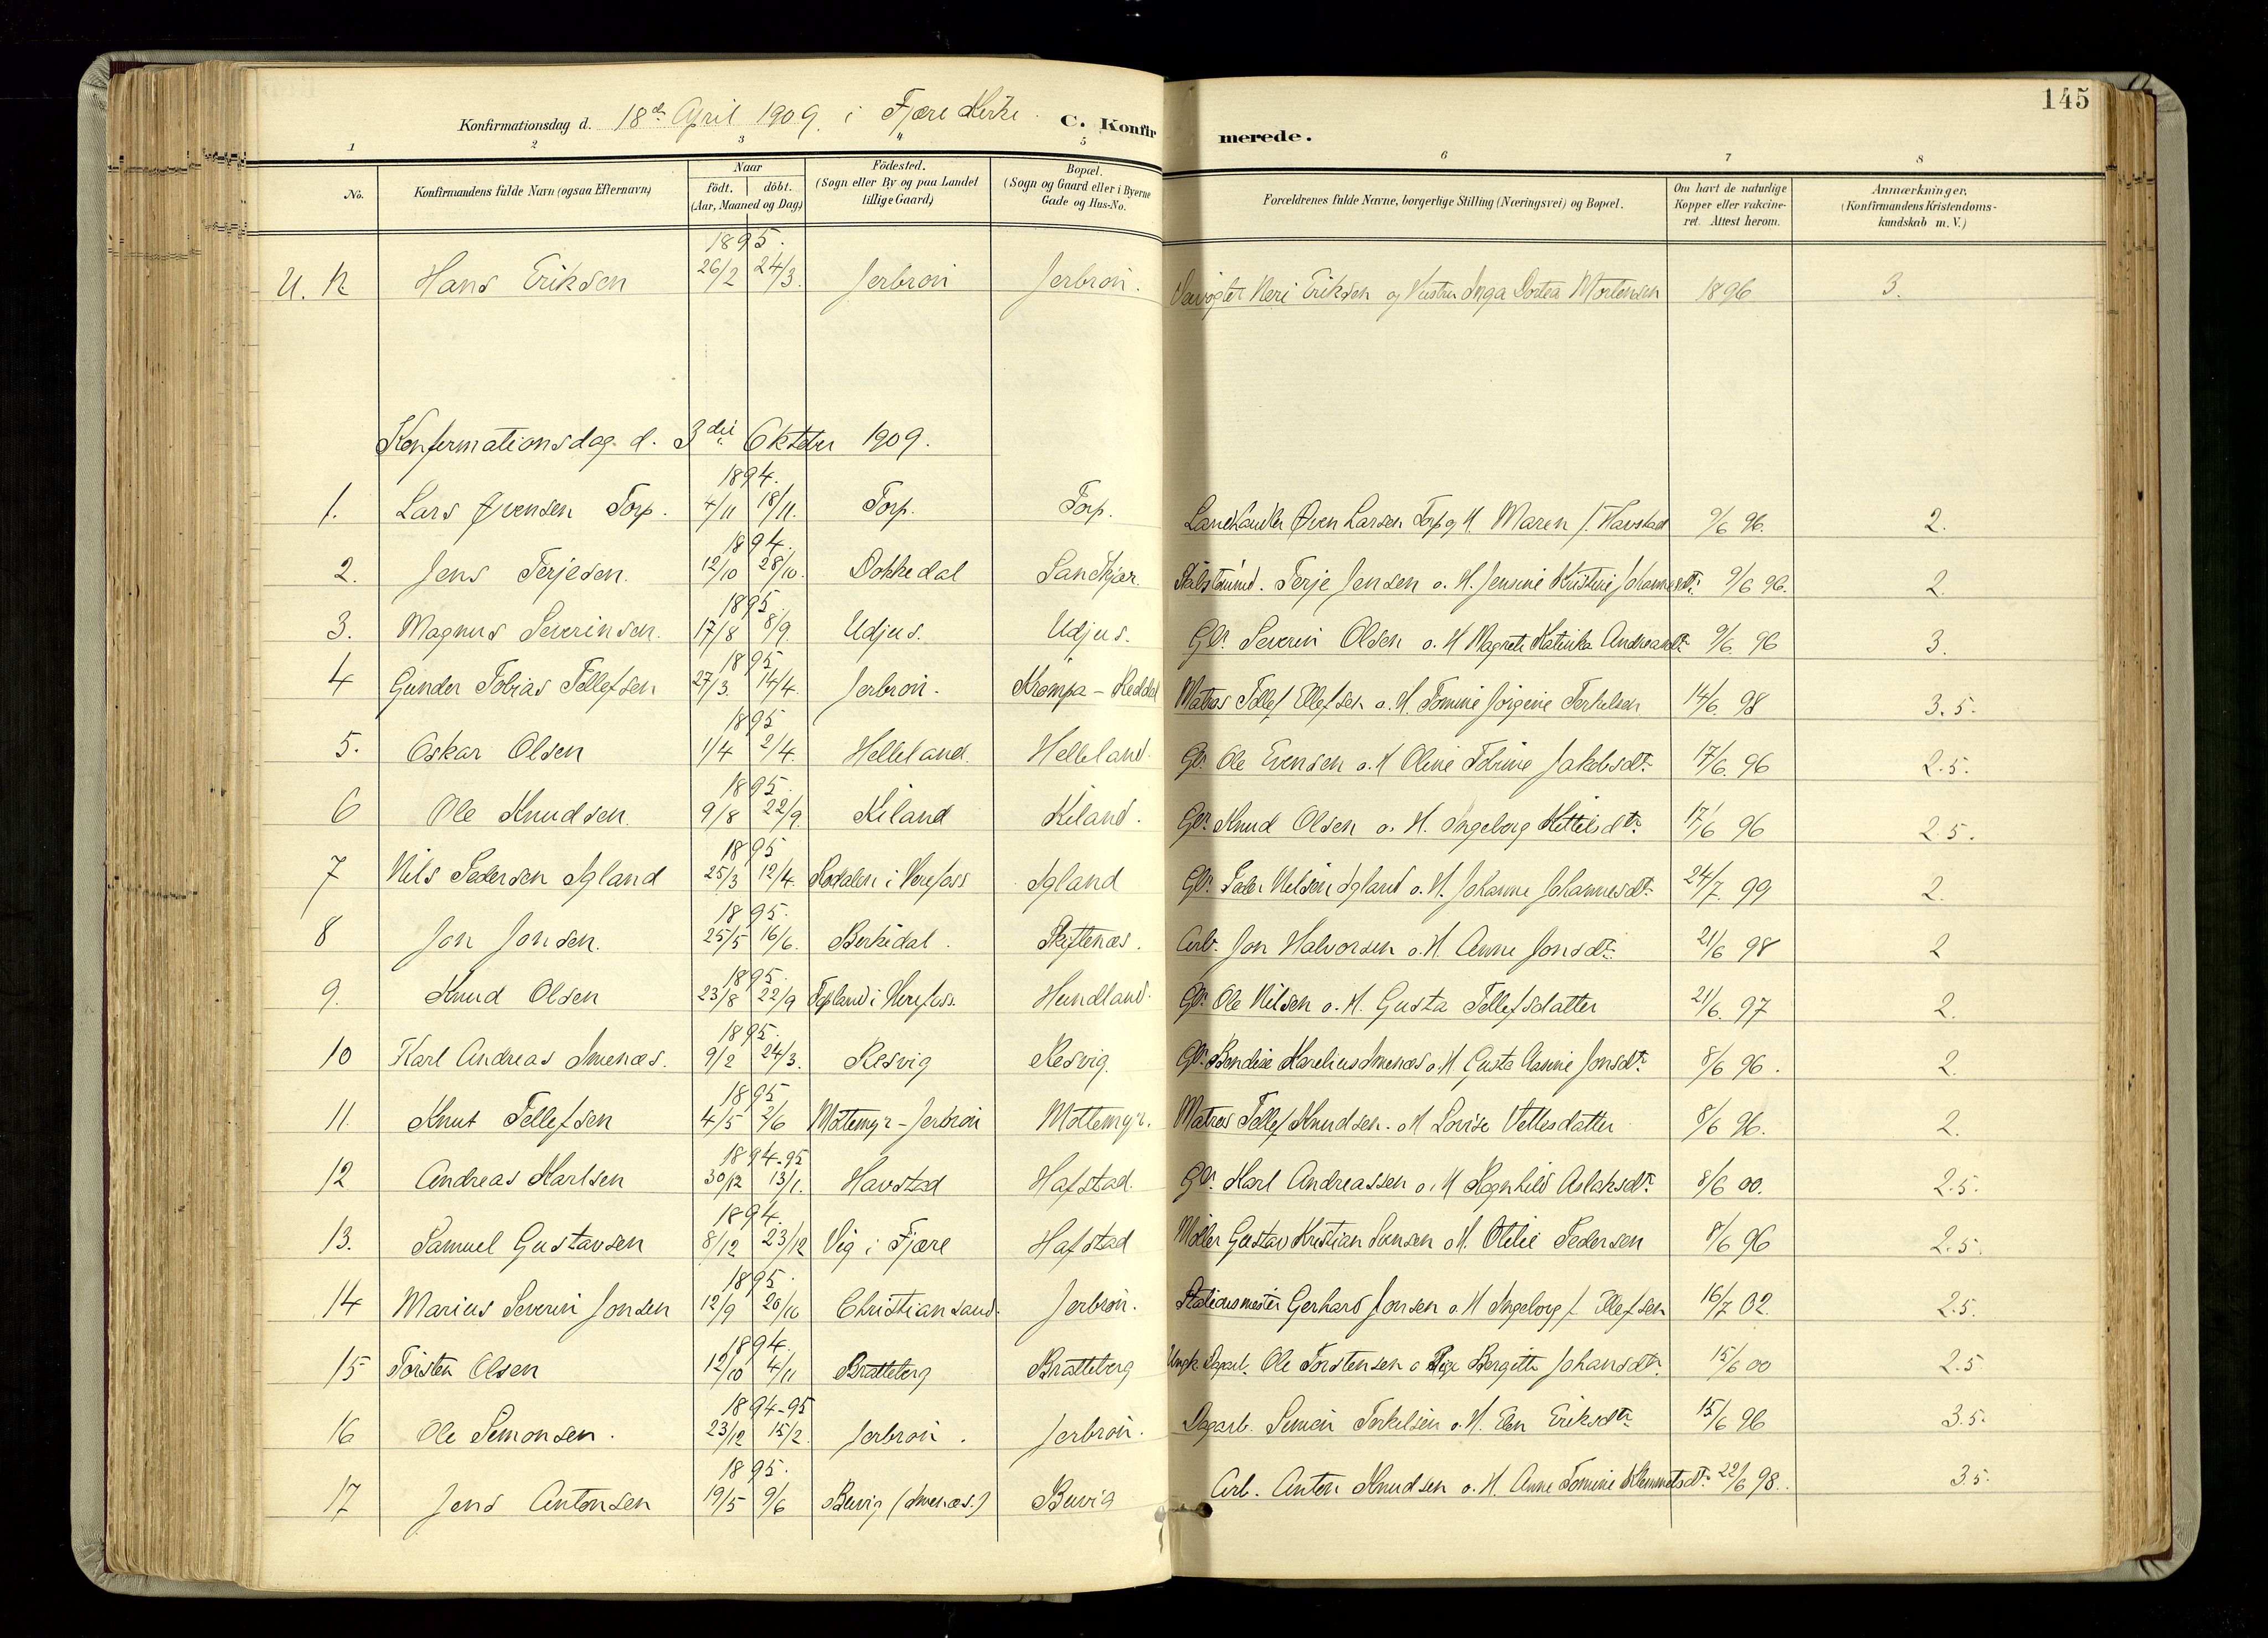 145
Konfirmationsdag d. 18de April 1909. i Fjære Kirke. C. Konfirmerede.
1 2 3 4 5 6 7 8
No. Konfirmandens fulde Navn (ogsaa Efternavn) Naar født. døbt. (Aar, Maaned og Dag) Födested. (Sogn eller By og paa Landet tillige Gaard) Bopæl. (Sogn og Gaard eller i Byerne Gade og Hus-No. Forældrenes fulde Navne, borgerlige Stilling (Næringsvei) og Bopæl. Om havt de naturlige Kopper eller vakcineret. Attest herom. Anmærkninger. (Konfirmandens Kristendomskundskab m. V.)
1895.
U. N. Hans Eriksen 26/2 24/3. Jerbroii Jerbroii. Neri Eriksen og Hustru Inga Dortea Mortensen 1896 3.
Konfirmationsdag d. 3die Oktober 1909.
1894.
1. Lars Øvensen Torp. 4/11 18/11. Torp. Torp. Landhandler Øven Larsen Torp og H Maren f. Havstad 9/6 96. 2.
1894.
2. Jens Terjesen. 12/10 28/10. Dokkedal Sandkjær. Terje Jensen o. H. Jensine Kristine Johannesdtr. 9/6 96. 2.
1895.
3. Magnus Severinsen. 17/8 8/9. Udjus. Udjus. Gbr. Severin Olsen o. H Magrete Katinka Andreasdtr 9/6. 96 3.
1895
4 Gunder Tobias Tellefsen 27/3. 14/4. Jerbroii. Krompa - Reddal Matros Tellef Ellefsen o. H. Tomine Jörgine Terkelsen 14/6. 98 3.5.
1895
5. Oskar Olsen 1/4 2/4. Helleland. Helleland. Gbr. Ole Evensen o. H Oline Tobine Jakobsdtr. 17/6. 96 2.5.
1895.
6 Ole Knudsen. 9/8 22/9. Kiland Kiland. Gbr. Knud Olsen o. H. Ingeborg Kittilsdtr. 17/6 96 2.5.
1895
7 Nils Pedersen Igland 25/3 12/4. i Herefoss Igland Gbr. Peder Nilsen Igland o. H. Johanne Johannesdtr. 24/7. 99 2.
1895.
8 Jon Jonsen. 25/5 16/6. Berkedal. Skiftenæs. Arb. Jon Halvorsen o. H. Anne Jonsdtr. 21/6 98 2
1895.
9. Knud Olsen 23/8 22/9 Topland i Herefoss. Hundland. Gbr. Ole Nilsen o. H. Gusta Tellefsdatter 21/6. 97 2.
1895.
10 Karl Andreas Imenæs. 9/2 24/3. Resvig Resvig. Gbr. Bendix Kareliusimenæs o. H Gusta Jonsdtr 8/6 96. 2.
1895
11. Knut Tellefsen 4/5 2/6 Möttemyr - Jerbroii Möttemyr. Matros Tellef Knudsen. o H Lovise Vettesdatter 8/6 96. 2.
1894-95
12 Andreas Karlsen 30/12 13/1. Havstad Hafstad. Gbr. Karl Andreassen o. H Ragnhild Aslaksdtr. 8/6 00. 2.5.
1894.
13. Samuel Gustavsen 8/12 23/12 Vig i Fjære Hafstad Möller Gustav Kristian Svensen o H. Otilie Pedersen 8/6 96 2.5.
1895.
14 Marius Severin Jonsen 12/9 20/10 Christiansand. Jerbroii. Stationsmester Gerhard Jonsen o. H Ingeborg f. Ellefsen 16/7 02. 2.5.
1894.
15 Torsten Olsen 12/10 4/11 Bratteberg Bratteberg Ungk. Dagarb. Ole Torstensen o Pige Bergitte Johansdtr. 15/6 00 2.5
1894-95
16 Ole Simonsen. 23/12 15/2. Jerbroii. Jerbroii. Dagarb. Simon Terkelsen o. H. Elen Eriksdtr. 15/6 96 3.5.
1895.
17 Jens Antonsen 19/5 9/6 Buvig (Imenæs.) Buvig Arb. Anton Knudsen o. H. Anne Tomine Klemmetsdtr. 22/6 98. 3.5.